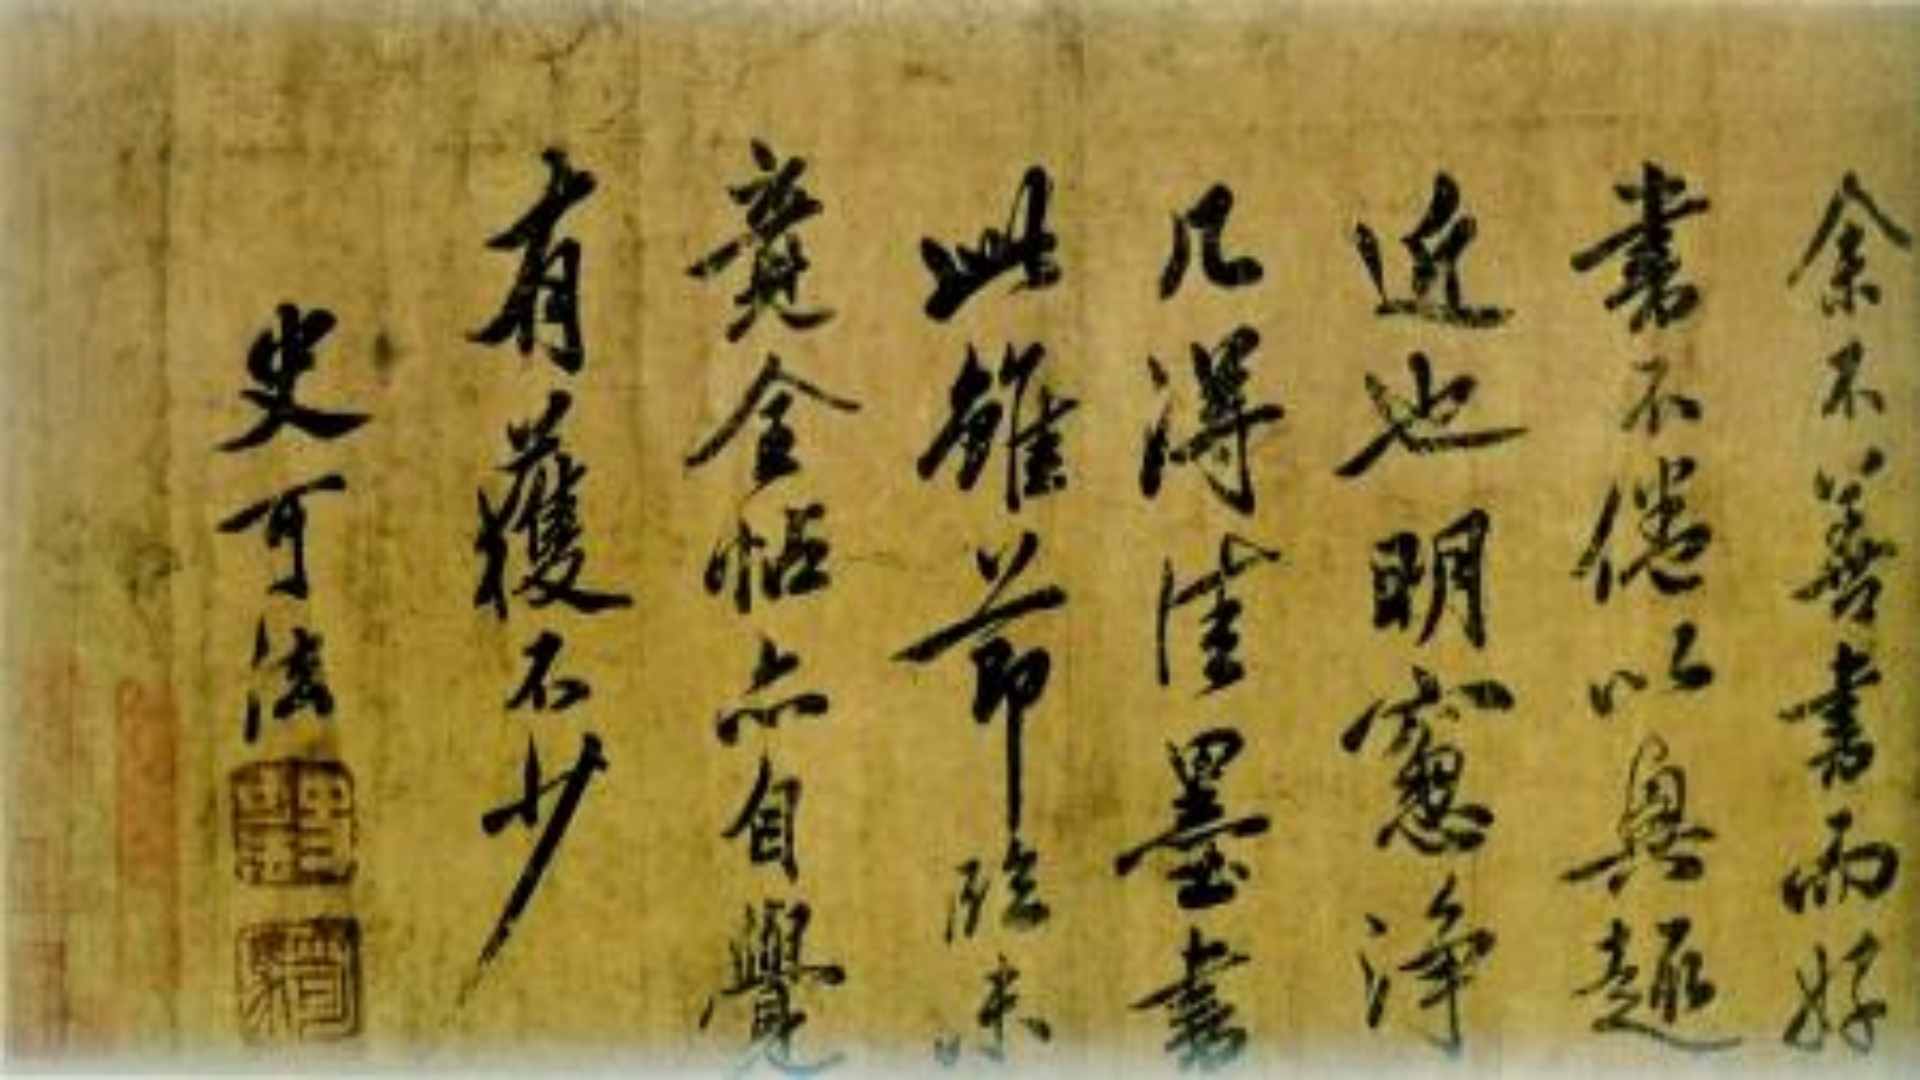 余不善書而好
書不倦以興趣
近也明窻淨
几得佳墨書
此雖節臨未
竟全帖亦自覺
有獲不少
史可法